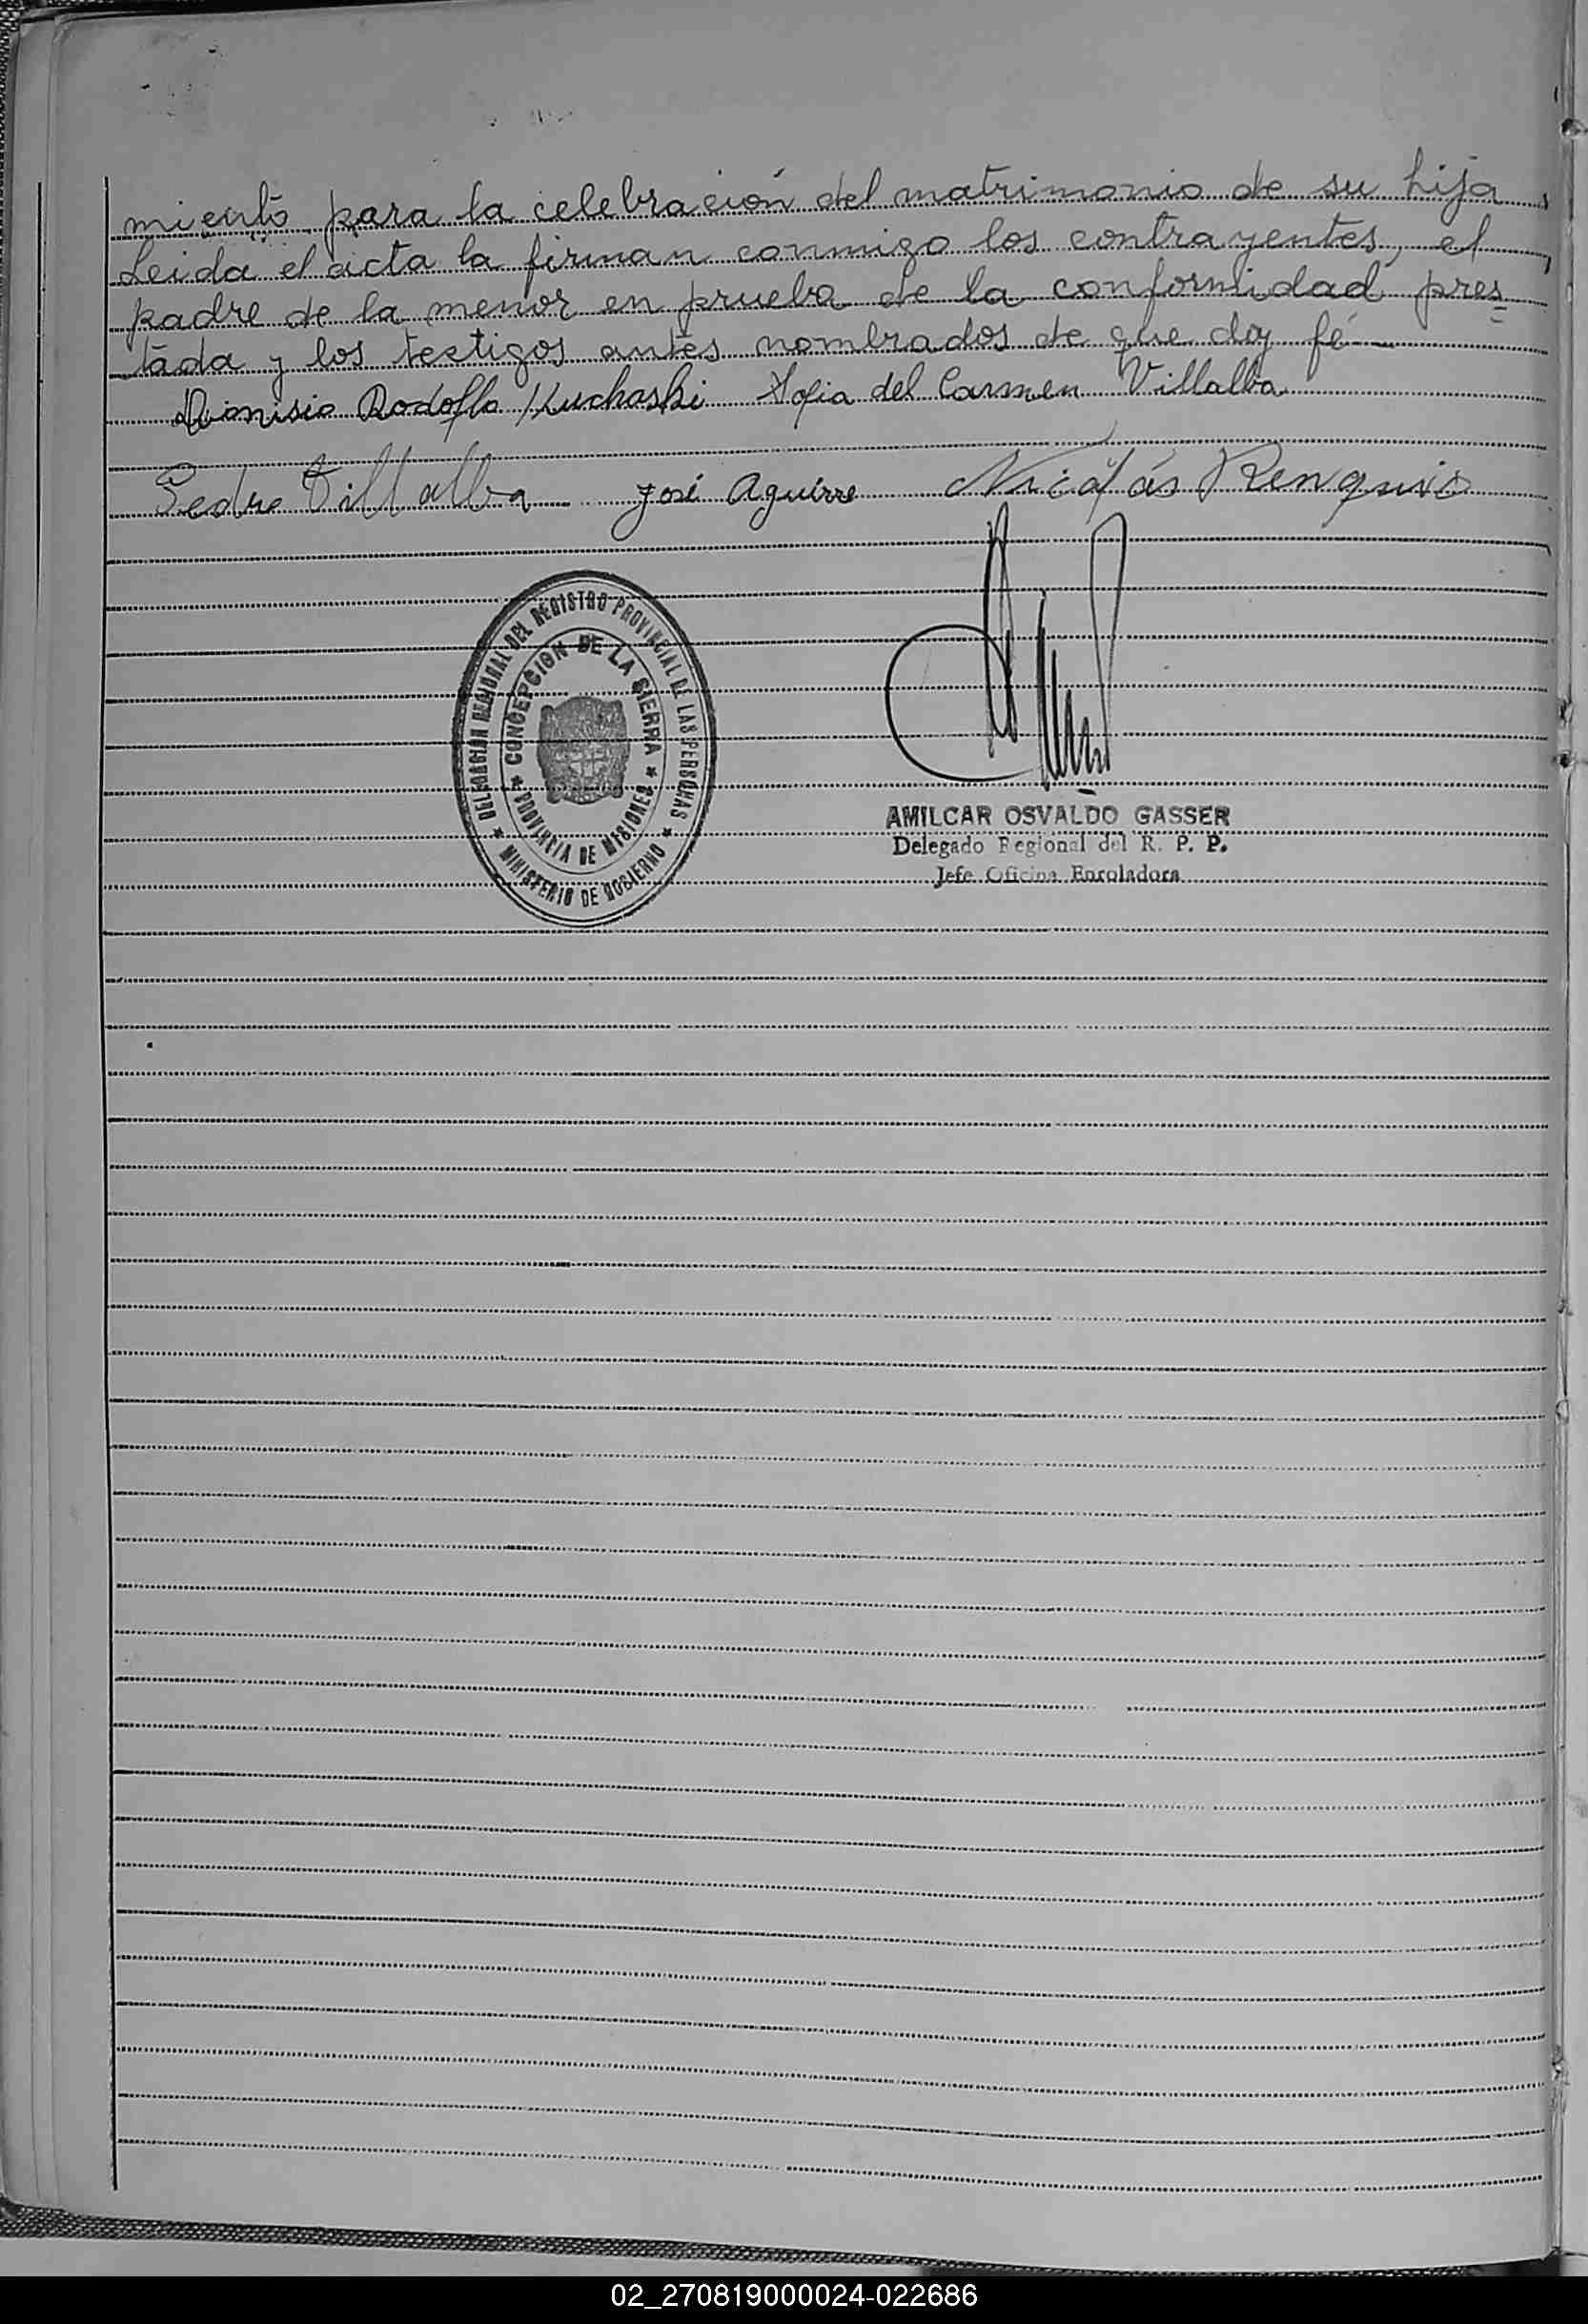 miento para la celebración del matrimonio de su hija.
Leida el acta la firman conmigo los contrayentes, el
padre de la menor en prueba de la conformidad pres=
tada y los testigos antes nombrados de que doy fé—
Dionisio Rodolfo Kuchaski Sofia del Carmen Villalba
Pedro Villalba José Aguirre Nicolás
DELEGACIÓN REGIONAL DEL REGISTRO PROVINCIAL DE LAS PERSONAS
★ MINISTERIO DE GOBIERNO ★
CONCEPCION DE LA SIERRA
★ PROVINCIA DE MISIONES ★
AMILCAR OSVALDO GASSER
Delegado Regional del R. P. P.
Jefe Oficina Enroladora
02_270819000024-022686